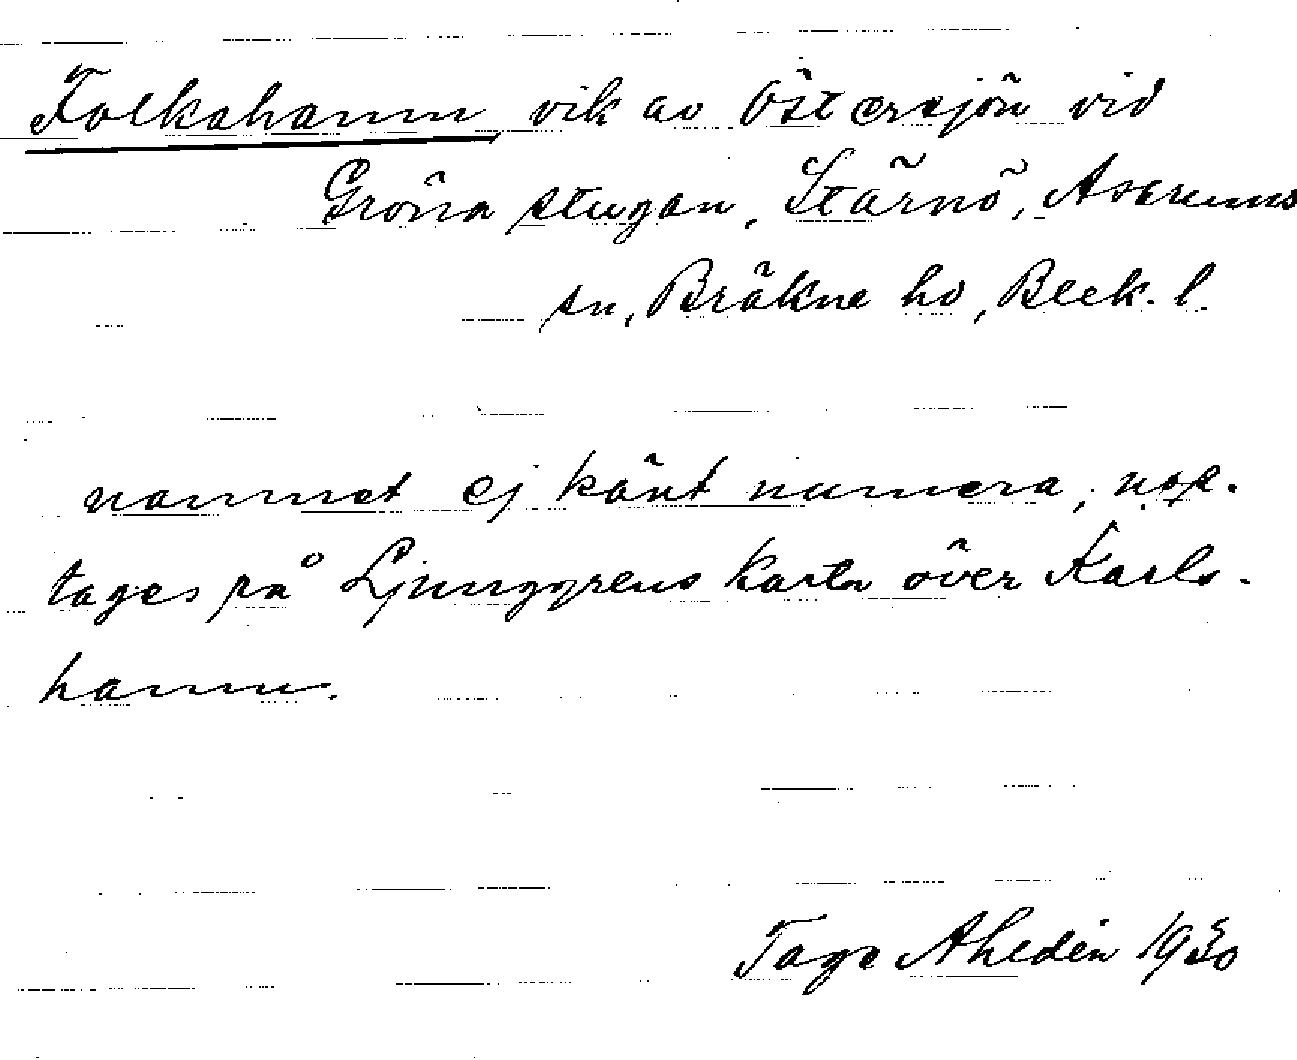 Folkahamn, vik av Östersjön vid
Gröna stugan, Stärnö, Asarums
sn, Bräkne hd, Blek. l.
namnet ej känt numera, upp-
tages på Ljunggrens karta över Karls-
hamn.
Tage Ahldén 1930